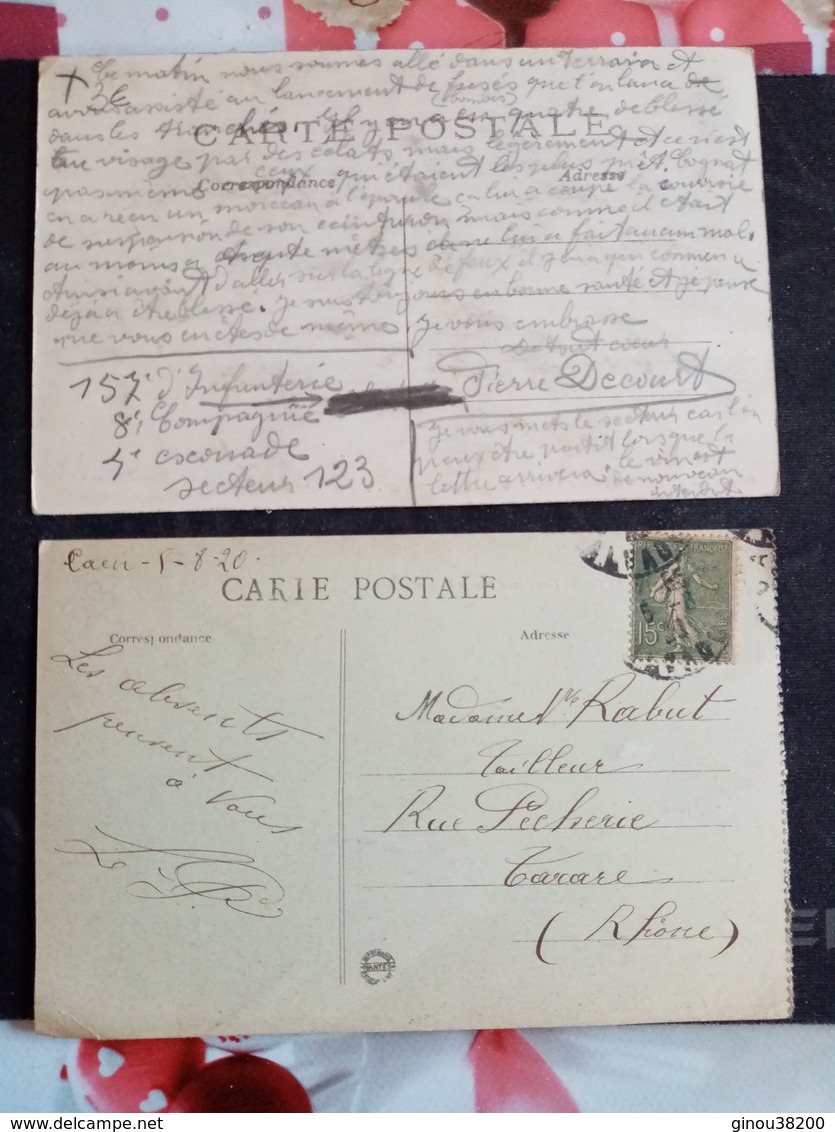 Ce matin nous sommes allé dans un terrain et
avons assisté au lancement de fusés que l'on lance de
(bombes)
dans les tranchés, il y en a eu quatre de blessé
CARTE POSTALE
au visage par des éclats mais légèrement et ce n'est
pas même ceux qui étaient les plus prêt. Cognat
Correspondance
Adresse
en a reçu un morceau à l'épaule ça lui a coupé la courroie
de suspension de son ceinturon mais comme il était
au moins a mètres lui a fait aucun mal.
Ainsi avant d'aller sur la ligne de feux il y en a qui commence
déjà a être blessé. je suis toujours en bonne santé et je pense
que vous en êtes de même je vous embrasse
de tout coeur
Pierre Decourt
157e d'Infanterie
8e Compagnie
escouade
secteur 123
je vous mets le secteur car l'on
peux être partit lorsque la
lettre arrivera. le vin est
de nouveau
interdit
Caen - 5-8-20.
CARIE POSTALE
REPUBLIQUE FRANÇAISE
15c
Correspondance
Adresse
Les absents
pensent
à vous
Madame Vve Rabut
Tailleur
Rue Pêcherie
Tarare
(Rhône)
NANTES
ginou38200